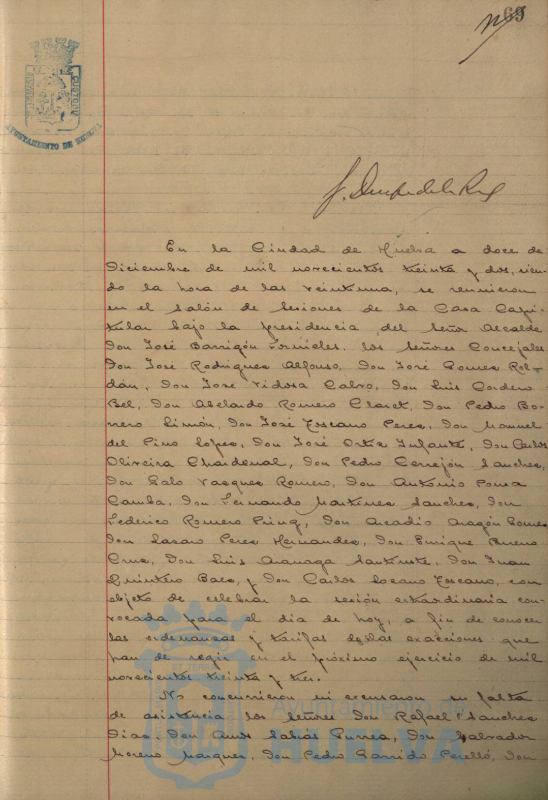 69
AYUNTAMIENTO DE HUELVA
En la Ciudad de Huelva a doce de
Diciembre de mil novecientos treinta y dos, sien-
do la hora de las veintiuna, se reunieron
en el salón de sesiones de la Casa Capi-
tular bajo la presidencia del Señor Alcalde
don José Barrigón Fornieles, los Señores Concejales
don José Rodriguez Alfonso, don José Gomez Rol-
dán, don José Vidosa Calvo, don Luis Cordero
Bel, don Abelardo Romero Claret, don Pedro Bo-
rrero Limón, don José Toscano Perez, don Manuel
del Pino Lopez, don José Ortiz Infante, don Carlos
Oliveira Chardenal, don Pedro Cerrejón Sanchez,
don Galo Vazquez Romero, don Antonio Ponsa
Camba, don Fernando Martinez Sanchez, don
Federico Romero don Arcadio Aragón Gomez
don Lazaro Perez Hernandez, don Enrique Bueno
Cruz, don Luis don Juan
Quintero Baez, y don Carlos Lozano Toscano, con
objeto de celebrar la sesión extraordinaria con-
vocada para el dia de hoy, a fin de conocer
las ordenanzas y tarifas de las exacciones que
han de regir en el próximo ejercicio de mil
novecientos treinta y tres.
No concurrieron ni excusaron su falta
de asistencia los Señores don Rafael Sanchez
Diaz, don Amós Sabrás Gurrea, don Salvador
Moreno Marquez, don Pedro Garrido Perelló, don
Ayuntamiento de
HUELVA